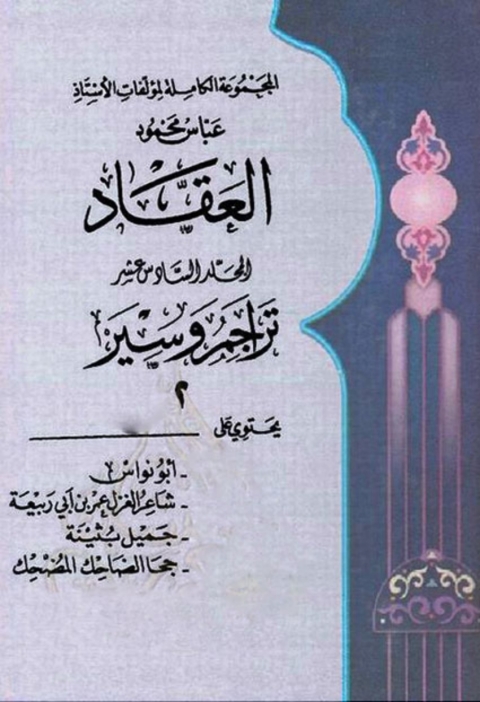 المجموعة الكاملة لمؤلفات الأستاذ
عباس محمود
العقاد
المجلد السادس عشر
تراجم وسير
٢
يحتوي على
- أبو نواس
- شاعر الغزل عمر بن أبي ربيعة
- جميل بثينة
- جحا الضاحك المضحك